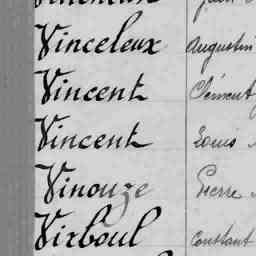 Vinceleux Augustin
Vincent Clément
Vincent Louis
Vinouze Pierre
Virboul Constant